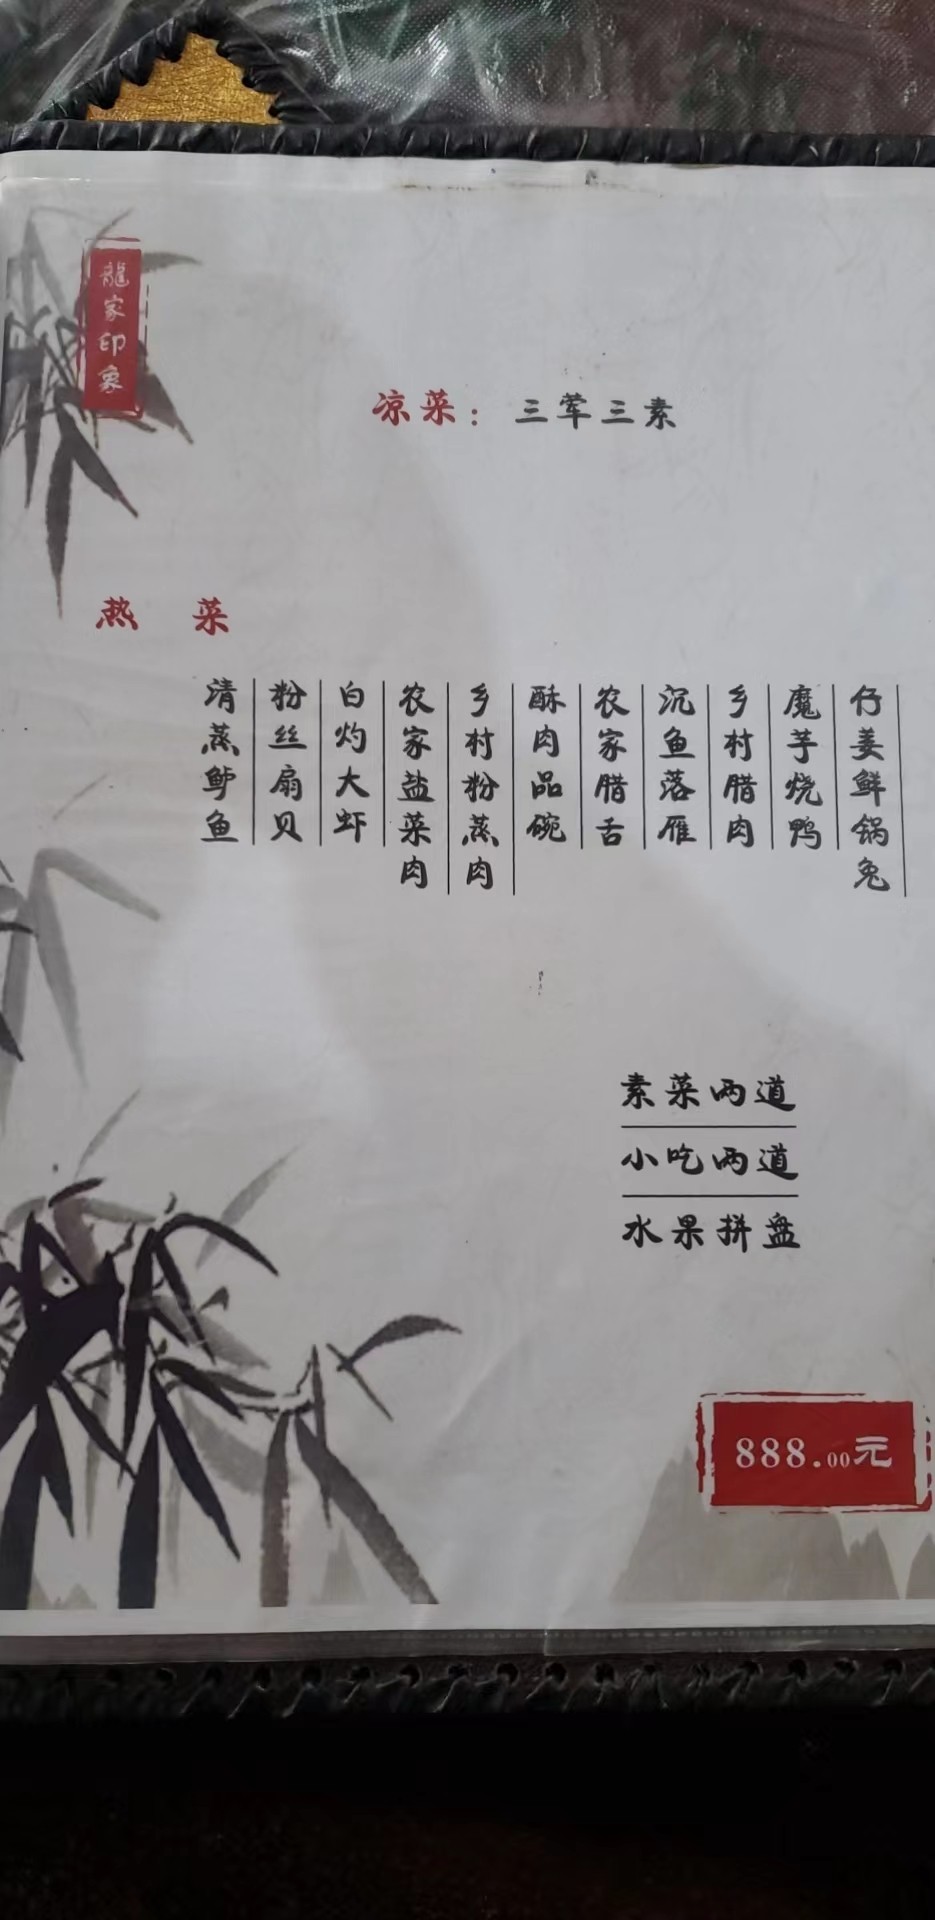 龍家印象
凉菜：三荤三素
热菜
仔姜鲜锅兔
魔芋烧鸭
乡村腊肉
沉鱼落雁
农家腊舌
酥肉品碗
乡村粉蒸肉
农家盐菜肉
白灼大虾
粉丝扇贝
清蒸鲈鱼
素菜两道
小吃两道
水果拼盘
888.00元